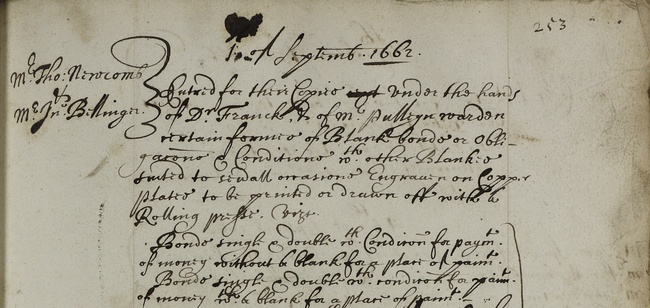 253
1o of Septemb. 1662.
Mr. Tho: Newcomb
Mr. Jno. Billinger.
Entred for their Copie under the hands
of Dr. Franck & of Mr. Pulleyn warden
certain formes of Blank bonds or Obli-
gacons & Conditions wth. other Blankes
suted to severall occasions Engraven on Copper
plates to be printed or drawn off with a
Rolling presse. Vizt.
Bonds single & double wth. Condicon for paymt.
of money without a blank for a place of paimt.
Bonds single & double wth. condicon for paimt.
of money wth. a blank for a place of paimt.